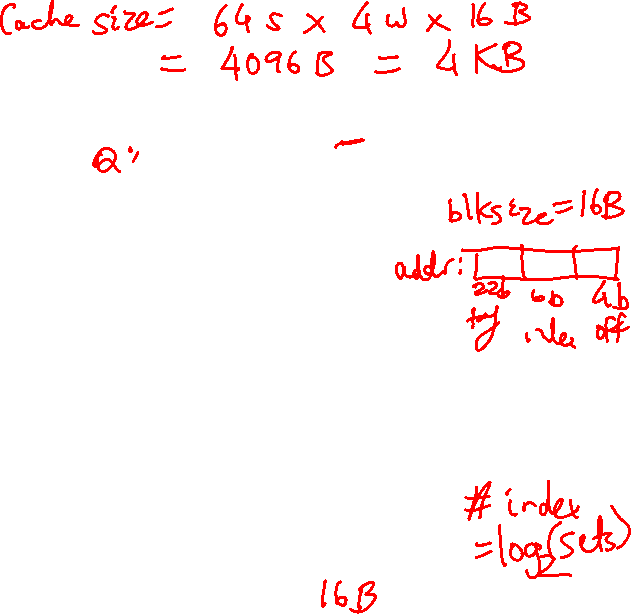 Cache size = 64 s x 4 w x 16 B
= 4096 B = 4 KB
Q:
blksize = 16B
addr:
22b 6b 4b
tag index off
# index
= log2(sets)
16B